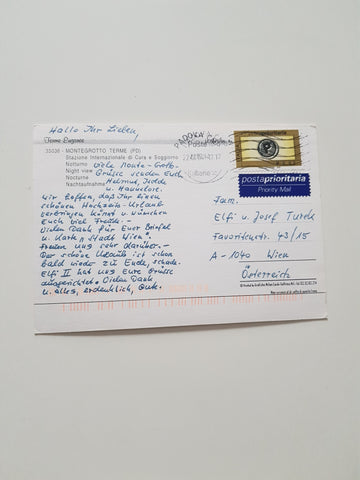 Hallo Ihr Lieben,
Terme Euganee
35036 - MONTEGROTTO TERME (PD)
Stazione Internazionale di Cura e Soggiorno
Notturno
Night view
Nocturne
Nachtaufnahme
Viele Monte-Grotto-
Grüße senden Euch
Helmut, Hedda
u. Hannelore.
Wir hoffen, daß Ihr einen
schönen Hochzeits-Urlaub
verbringen könnt u. wünschen
Euch viel Freude.-
Vielen Dank für Euer Brieferl
u. Karte "Stadt Wien".
freuen uns sehr darüber.-
Der schöne Urlaub ist schon
bald wieder zu Ende, schade.
Elfi II hat uns Eure Grüße
ausgerichtet. Vielen Dank
u. alles, erdenklich, Gute.
PADOVA
postaprioritaria
Priority Mail
Fam.
Elfi u. Josef Turek
Favoritenstr. 43/15
A-1040 Wien
Österreich